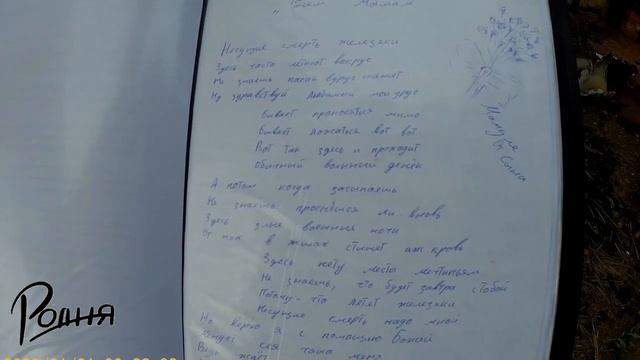 „ Всем Мамам
Несущие смерть железяки
Здесь часто летают вокруг
Не знаешь какая вдруг скажет
Ну здравствуй любимый мой друг
Бывает проносятся мимо
Бывает ложатся вот вот
Вот так здесь и проходит
Обычный военный денёк
А потом когда засыпаешь
Не знаешь проснёшся ли вновь
Здесь злые военные ночи
От них в жилах стынет аж кровь
Здесь нету места
Не знаешь, что будет завтра с тобой
Потому-что летят железяки
Несущие смерть надо мной
Но верю я с помощью Божей
сея чаша меня
Мамуле
от Сына
Родня